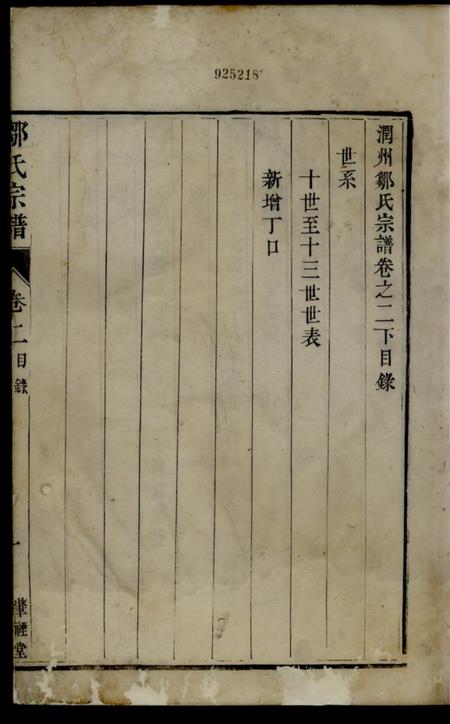 925218
潤州鄒氏宗譜卷之二下目錄
世系
十世至十三世世表
新增丁口
鄒氏宗譜
卷二目錄
一
堂